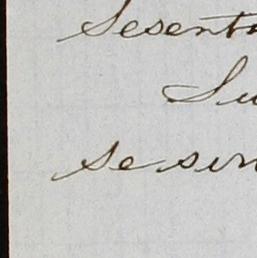 Sesent
Su
se sir